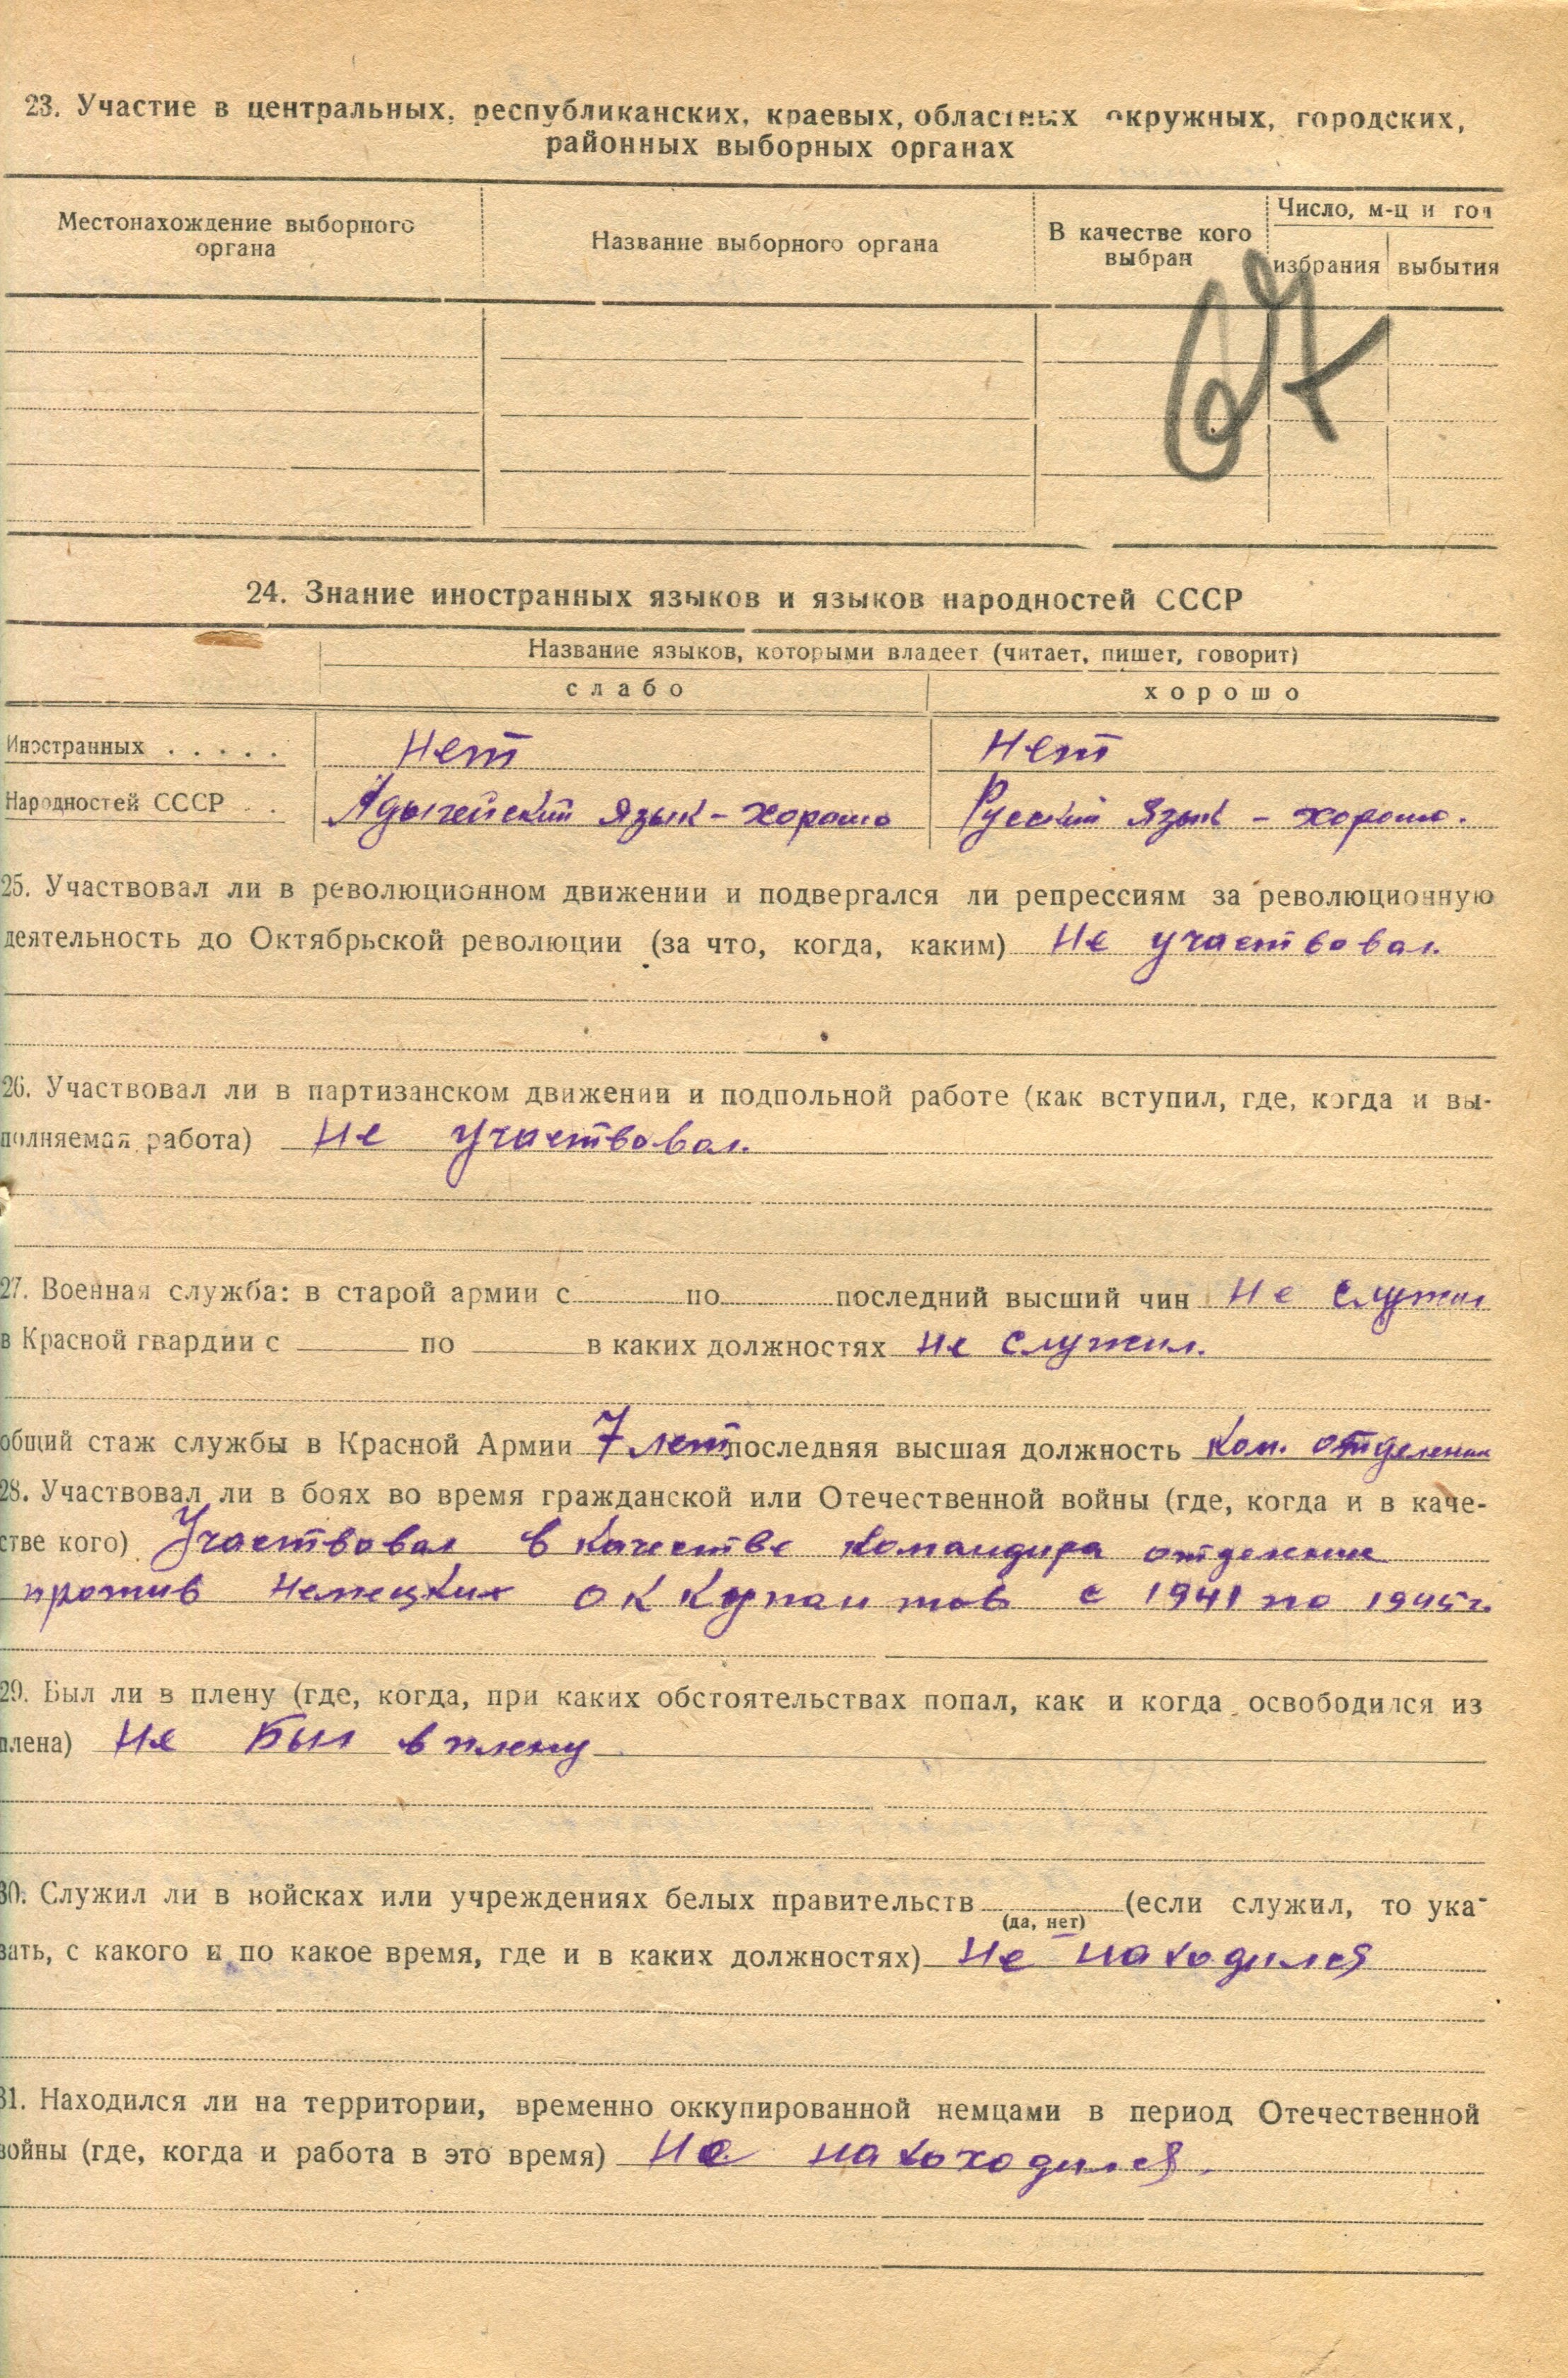 23. Участие в центральных, республиканских, краевых, областных окружных, городских,
районных выборных органах
Местонахождение выборного
органа
Название выборного органа
В качестве кого
выбран
Число, м-ц и год
избрания
выбытия
24. Знание иностранных языков и языков народностей СССР
Название языков, которыми владеет (читает, пишет, говорит)
слабо
хорошо
Иностранных . . . . .
Нет
Нет
Народностей СССР . .
Адыгейский язык - хорошо
Русский язык - хорошо.
25. Участвовал ли в революционном движении и подвергался ли репрессиям за революционную
деятельность до Октябрьской революции (за что, когда, каким) Не участвовал.
26. Участвовал ли в партизанском движении и подпольной работе (как вступил, где, когда и вы-
полняемая работа) Не участвовал.
27. Военная служба: в старой армии с по последний высший чин Не служил
в Красной гвардии с по в каких должностях не служил.
общий стаж службы в Красной Армии 7 лет последняя высшая должность ком. отделения
28. Участвовал ли в боях во время гражданской или Отечественной войны (где, когда и в каче-
стве кого) Участвовал в качестве командира отделения
против немецких оккупантов с 1941 по 1945 г.
29. Был ли в плену (где, когда, при каких обстоятельствах попал, как и когда освободился из
плена) Не был в плену
30. Служил ли в войсках или учреждениях белых правительств (если служил, то ука-
(да, нет)
зать, с какого и по какое время, где и в каких должностях) Не находился
31. Находился ли на территории, временно оккупированной немцами в период Отечественной
войны (где, когда и работа в это время) Не находился.